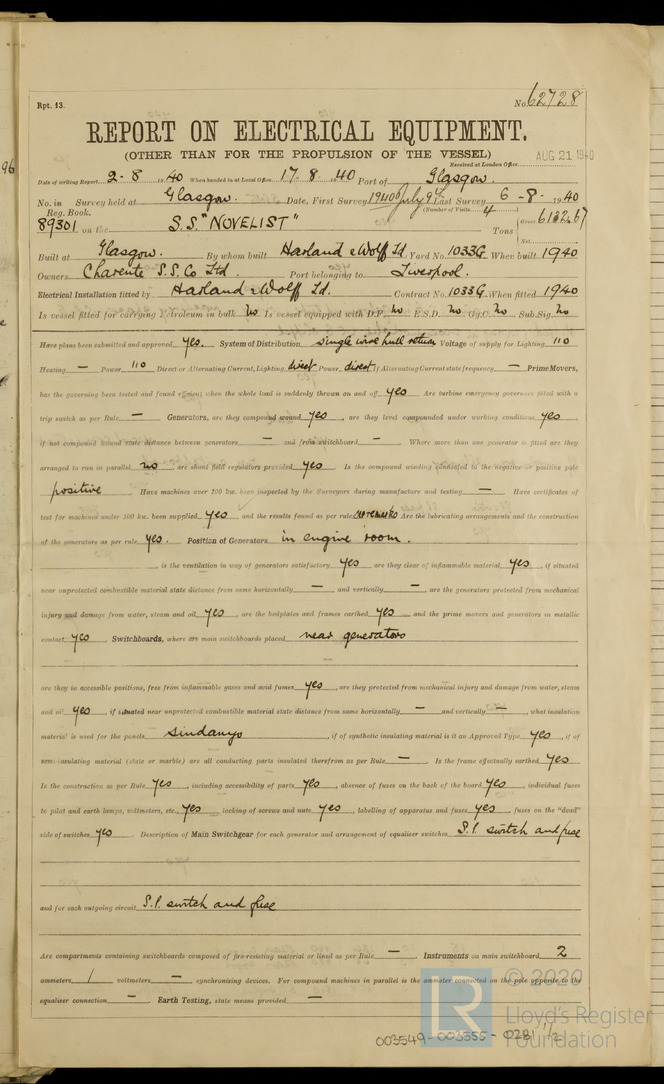 96
Rpt. 13.
No. 62728
REPORT ON ELECTRICAL EQUIPMENT.
(OTHER THAN FOR THE PROPULSION OF THE VESSEL)
AUG 21 1940
Received at London Office
Date of writing Report 2-8 1940 When handed in at Local Office 17-8 1940 Port of Glasgow.
No. in Survey held at Glasgow. Date, First Survey 1940 July 9th Last Survey 6-8-1940
Reg. Book. (Number of Visits 4)
89301 on the S.S. "NOVELIST" Tons { Gross 6132.67
Net
Built at Glasgow. By whom built Harland & Wolff Ld. Yard No. 1033G When built 1940
Owners Charente S.S. Co Ltd. Port belonging to Liverpool.
Electrical Installation fitted by Harland & Wolff Ld. Contract No. 1033G When fitted 1940
Is vessel fitted for carrying Petroleum in bulk no Is vessel equipped with D.F. no E.S.D. no Gy.C. no Sub.Sig. no
Have plans been submitted and approved yes. System of Distribution single wire hull return Voltage of supply for Lighting 110
Heating — Power 110 Direct or Alternating Current, Lighting direct Power direct If Alternating Current state frequency — Prime Movers,
has the governing been tested and found efficient when the whole load is suddenly thrown on and off yes Are turbine emergency governors fitted with a
trip switch as per Rule — Generators, are they compound wound yes, are they level compounded under working conditions yes
if not compound wound state distance between generators — and from switchboard — Where more than one generator is fitted are they
arranged to run in parallel no, are shunt field regulators provided yes Is the compound winding connected to the negative or positive pole
positive Have machines over 100 kw. been inspected by the Surveyors during manufacture and testing — Have certificates of
test for machines under 100 kw. been supplied yes and the results found as per rule Are the lubricating arrangements and the construction
of the generators as per rule yes. Position of Generators in engine room.
, is the ventilation in way of generators satisfactory yes are they clear of inflammable material yes, if situated
near unprotected combustible material state distance from same horizontally — and vertically —, are the generators protected from mechanical
injury and damage from water, steam and oil yes, are the bedplates and frames earthed yes and the prime movers and generators in metallic
contact yes Switchboards, where are main switchboards placed near generators
—
are they in accessible positions, free from inflammable gases and acid fumes yes, are they protected from mechanical injury and damage from water, steam
and oil yes, if situated near unprotected combustible material state distance from same horizontally — and vertically —, what insulation
material is used for the panels sindanyo, if of synthetic insulating material is it an Approved Type yes, if of
semi-insulating material (slate or marble) are all conducting parts insulated therefrom as per Rule — Is the frame effectually earthed yes
Is the construction as per Rule yes, including accessibility of parts yes, absence of fuses on the back of the board yes, individual fuses
to pilot and earth lamps, voltmeters, etc. yes locking of screws and nuts yes, labelling of apparatus and fuses yes, fuses on the "dead"
side of switches yes Description of Main Switchgear for each generator and arrangement of equaliser switches S.P. switch and fuse
and for each outgoing circuit S.P. switch and fuse
Are compartments containing switchboards composed of fire-resisting material or lined as per Rule — Instruments on main switchboard 2
ammeters 1 voltmeters — synchronising devices. For compound machines in parallel is the ammeter connected on the pole opposite to the
equaliser connection — Earth Testing, state means provided —
© 2020
LR
Lloyd's Register
Foundation
003549-003555-0281 1/2